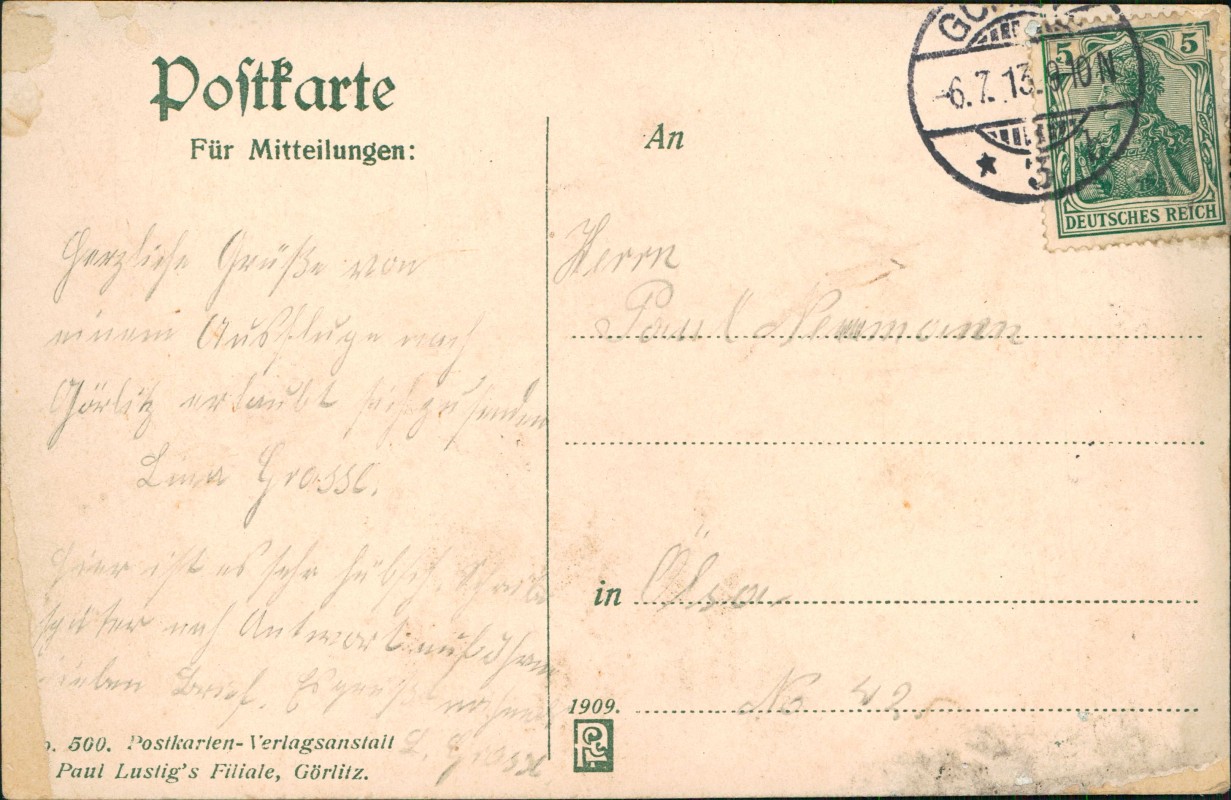 Postkarte
Für Mitteilungen:
Herzliche Grüße von
einem Ausfluge nach
Görlitz erlaubt sich zu senden
Lina Grosse.
Hier ist es sehr hübsch. Schreibe
später noch Antwort auf Ihren
lieben Brief. Es grüßt
L. Grosse
500. Postkarten-Verlagsanstalt
Paul Lustig's Filiale, Görlitz.
1909.
An
Herrn
Paul
in Ölsa
No 42
-6.7.13. 9-10N
3
5 5
DEUTSCHES REICH